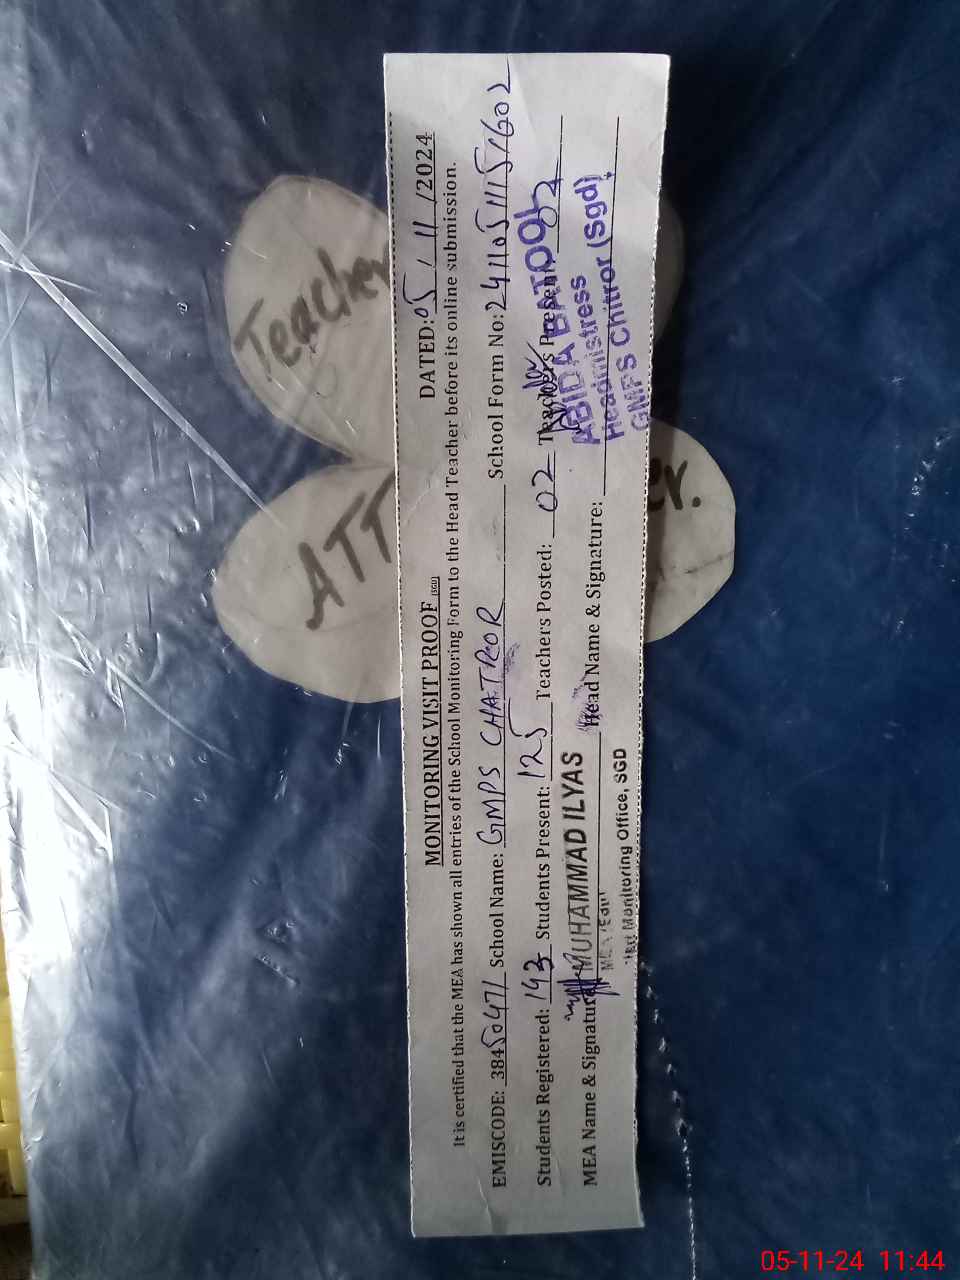 MONITORING VISIT PROOF (SGD) DATED: 05 / 11 /2024
It is certified that the MEA has shown all entries of the School Monitoring Form to the Head Teacher before its online submission.
EMISCODE: 38450471 School Name: GMPS CHATROOR School Form No: 241105111151602
Students Registered: 143 Students Present: 125 Teachers Posted: 02 Teachers Present: 02
MEA Name & Signature: MUHAMMAD ILYAS Head Name & Signature:
Monitoring Office, SGD
ABIDA BATOOL
Headmistress
GMPS Chitror (Sgd)
Teacher
ATT
er.
05-11-24 11:44